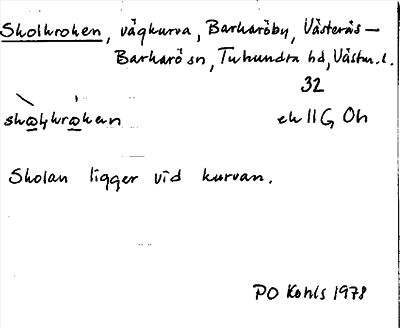 Skolkroken, vägkurva, Barkaröby, Västerås–
Barkarö sn, Tuhundra hd, Västm. l.
32
ek 11G Oh
Skolan ligger vid kurvan.
PO Kohls 1978